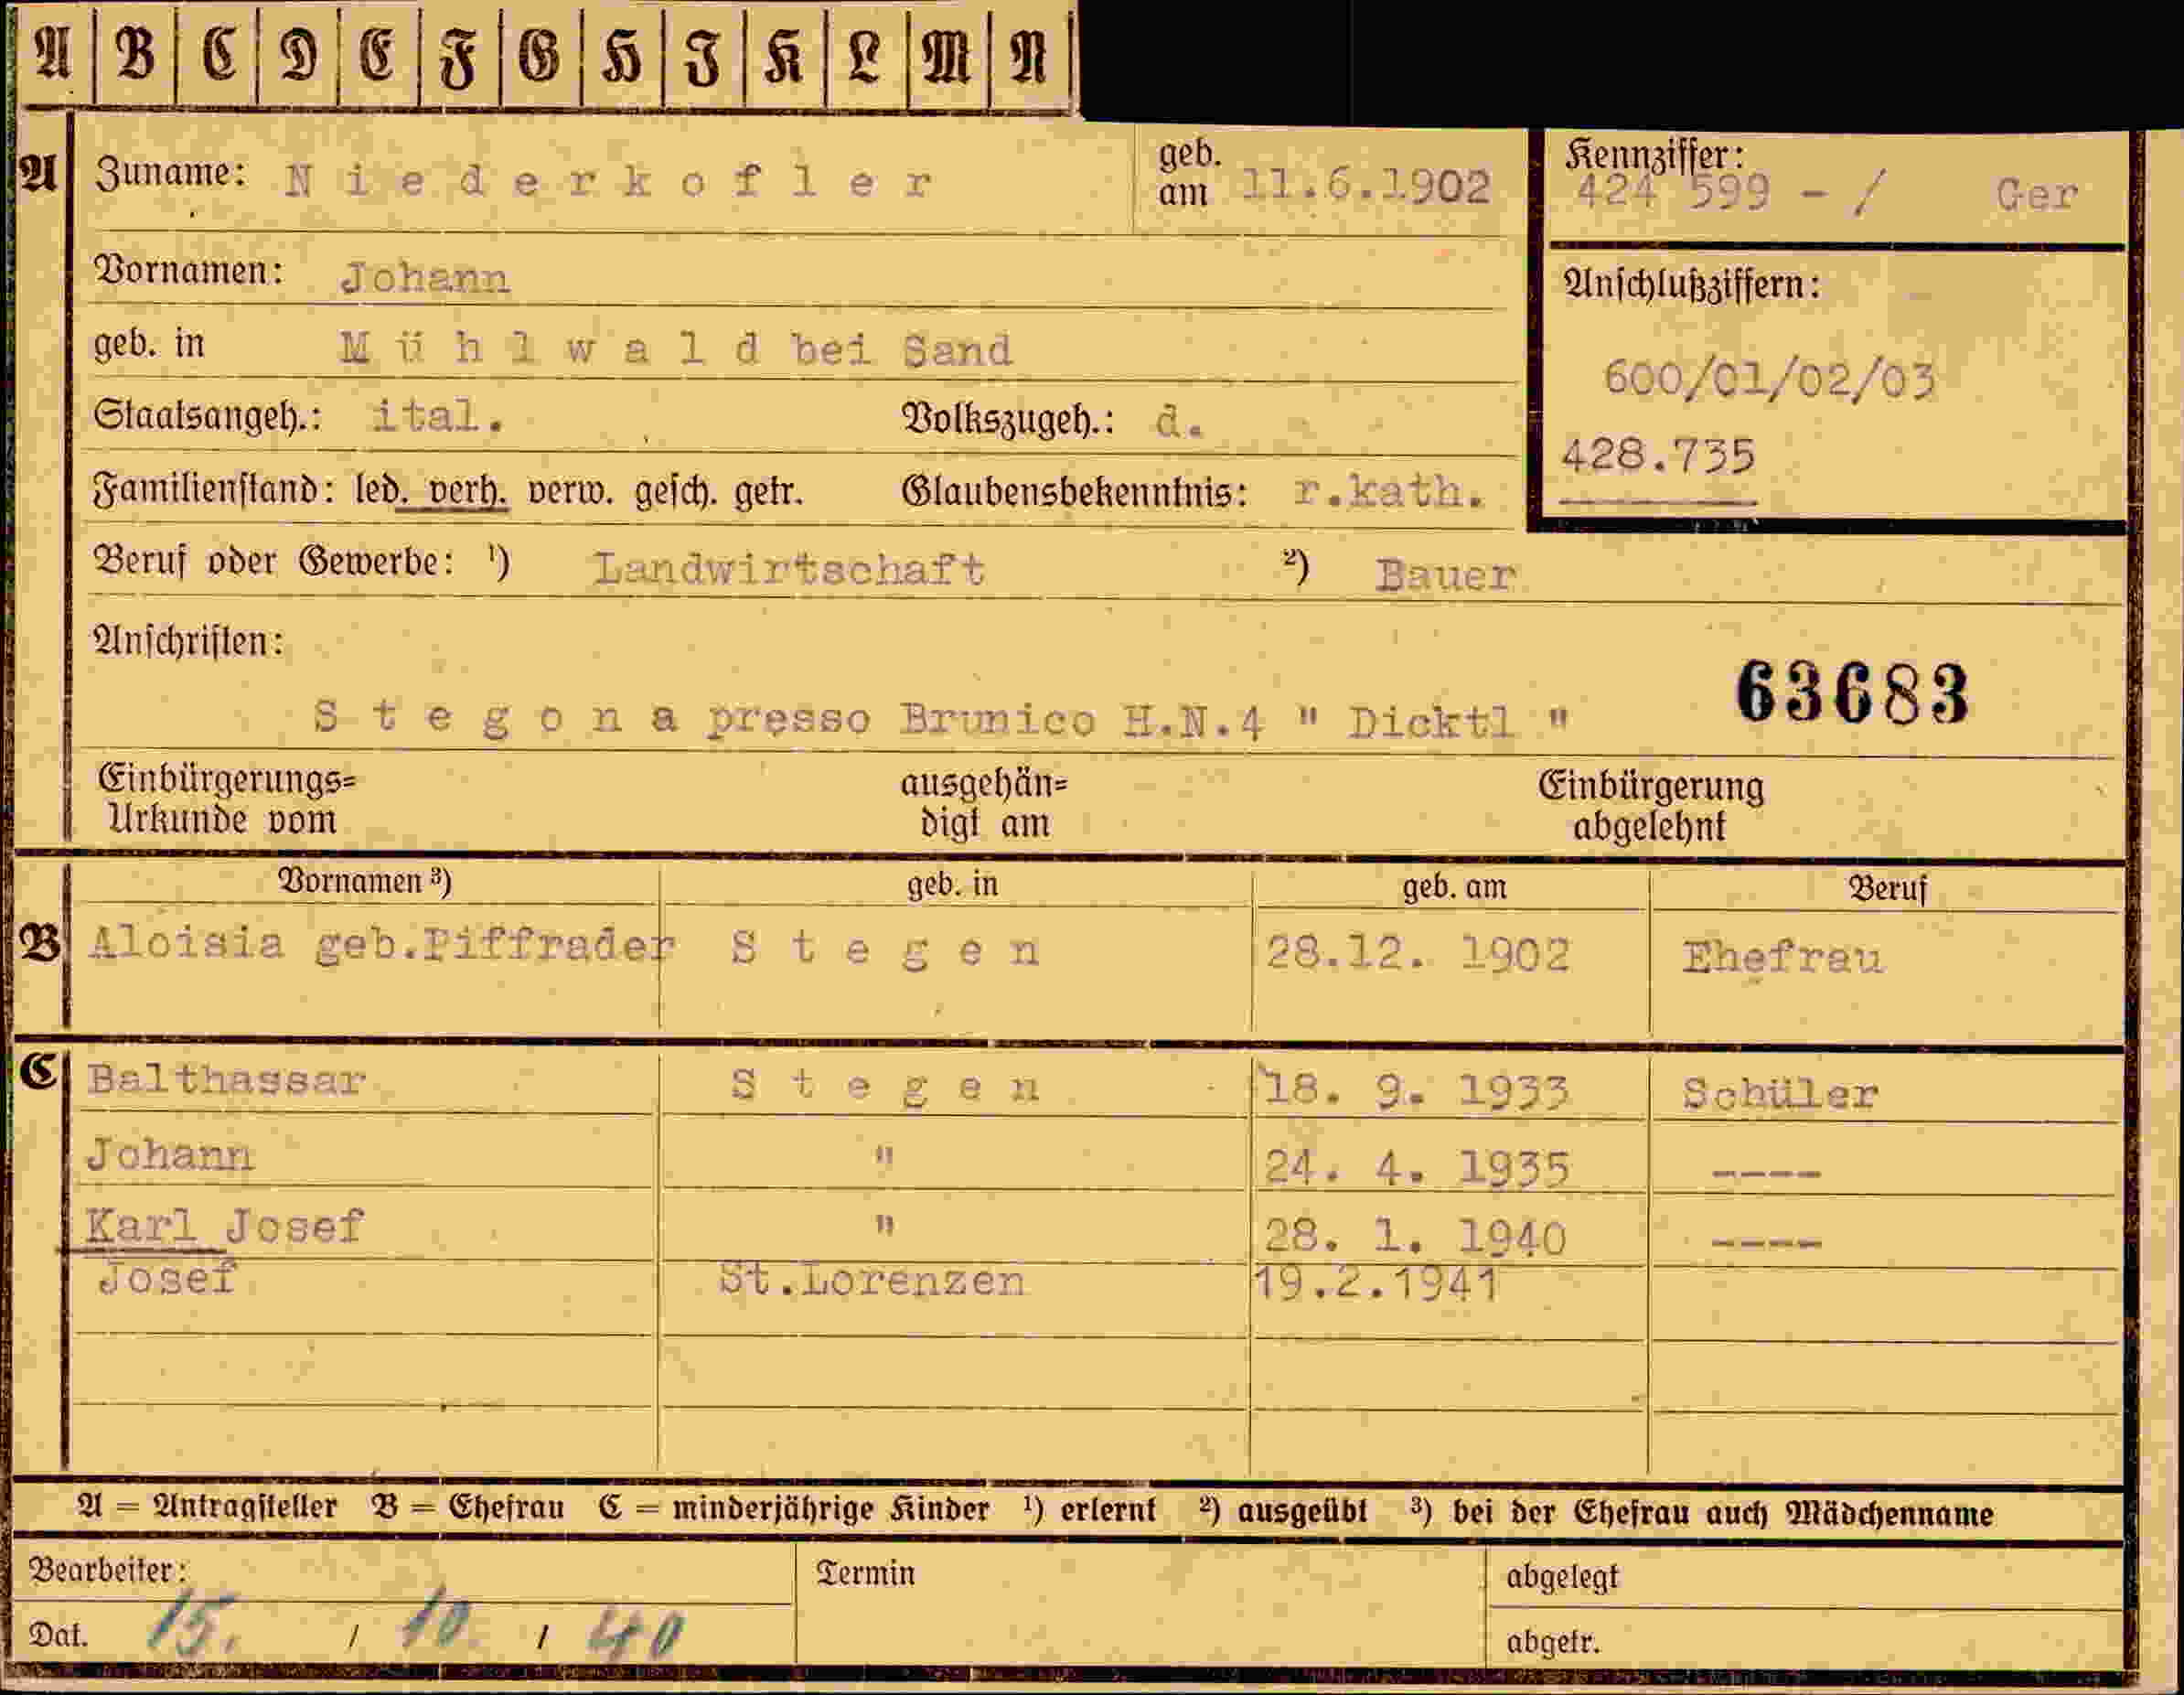 A B C D E F G H I K L M N
A Zuname: Niederkofler geb. am 11.6.1902 Kennziffer: 424 599 - / Ger
Vornamen: Johann Anschlußziffern:
geb. in Mühlwald bei Sand 600/01/02/03
Staatsangeh.: ital. Volkszugeh.: d. 428.735
Familienstand: led. verh. verw. gesch. getr. Glaubensbekenntnis: r.kath.
Beruf oder Gewerbe: ¹) Landwirtschaft ²) Bauer
Anschriften:
63683
Stegona presso Brunico H.N.4 " Dicktl "
Einbürgerungs= ausgehän= Einbürgerung
Urkunde vom digt am abgelehnt
Vornamen ³) geb. in geb. am Beruf
B Aloisia geb.Piffrader Stegen 28.12. 1902 Ehefrau
C Balthassar Stegen 18. 9. 1933 Schüler
Johann " 24. 4. 1935 ----
Karl Josef " 28. 1. 1940 ----
Josef St.Lorenzen 19.2.1941
A = Antragsteller B = Ehefrau C = minderjährige Kinder ¹) erlernt ²) ausgeübt ³) bei der Ehefrau auch Mädchenname
Bearbeiter: Termin abgelegt
Dat. 15. / 10. / 40 abgetr.